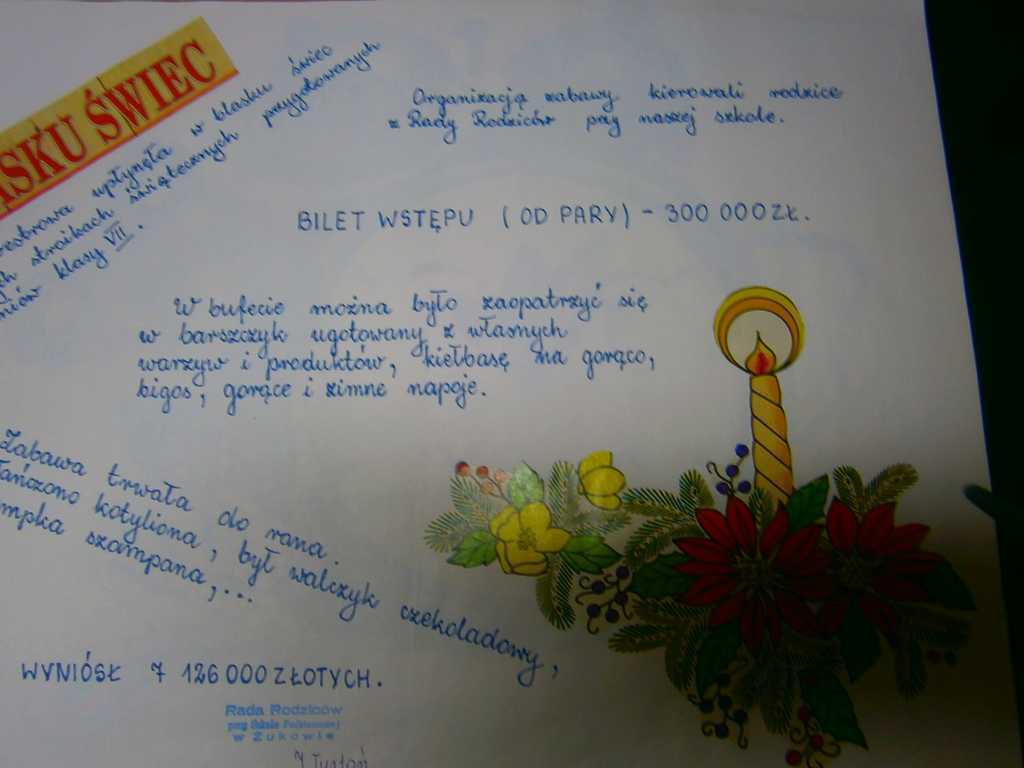 SKU ŚWIEC
upłynęła w blasku świec
stroikach świątecznych przygotowanych
klasy VII.
Organizacją zabawy kierowali rodzice
z Rady Rodziców przy naszej szkole.
BILET WSTĘPU (OD PARY) - 300 000 ZŁ.
W bufecie można było zaopatrzyć się
w barszczyk ugotowany z własnych
warzyw i produktów, kiełbasę na gorąco,
bigos, gorące i zimne napoje.
Zabawa trwała do rana.
Tańczono kotyliona, był walczyk czekoladowy,
mpka szampana,...
WYNIÓSŁ 7 126 000 ZŁOTYCH.
Rada Rodziców
przy Szkole Podstawowej
w Żukowie